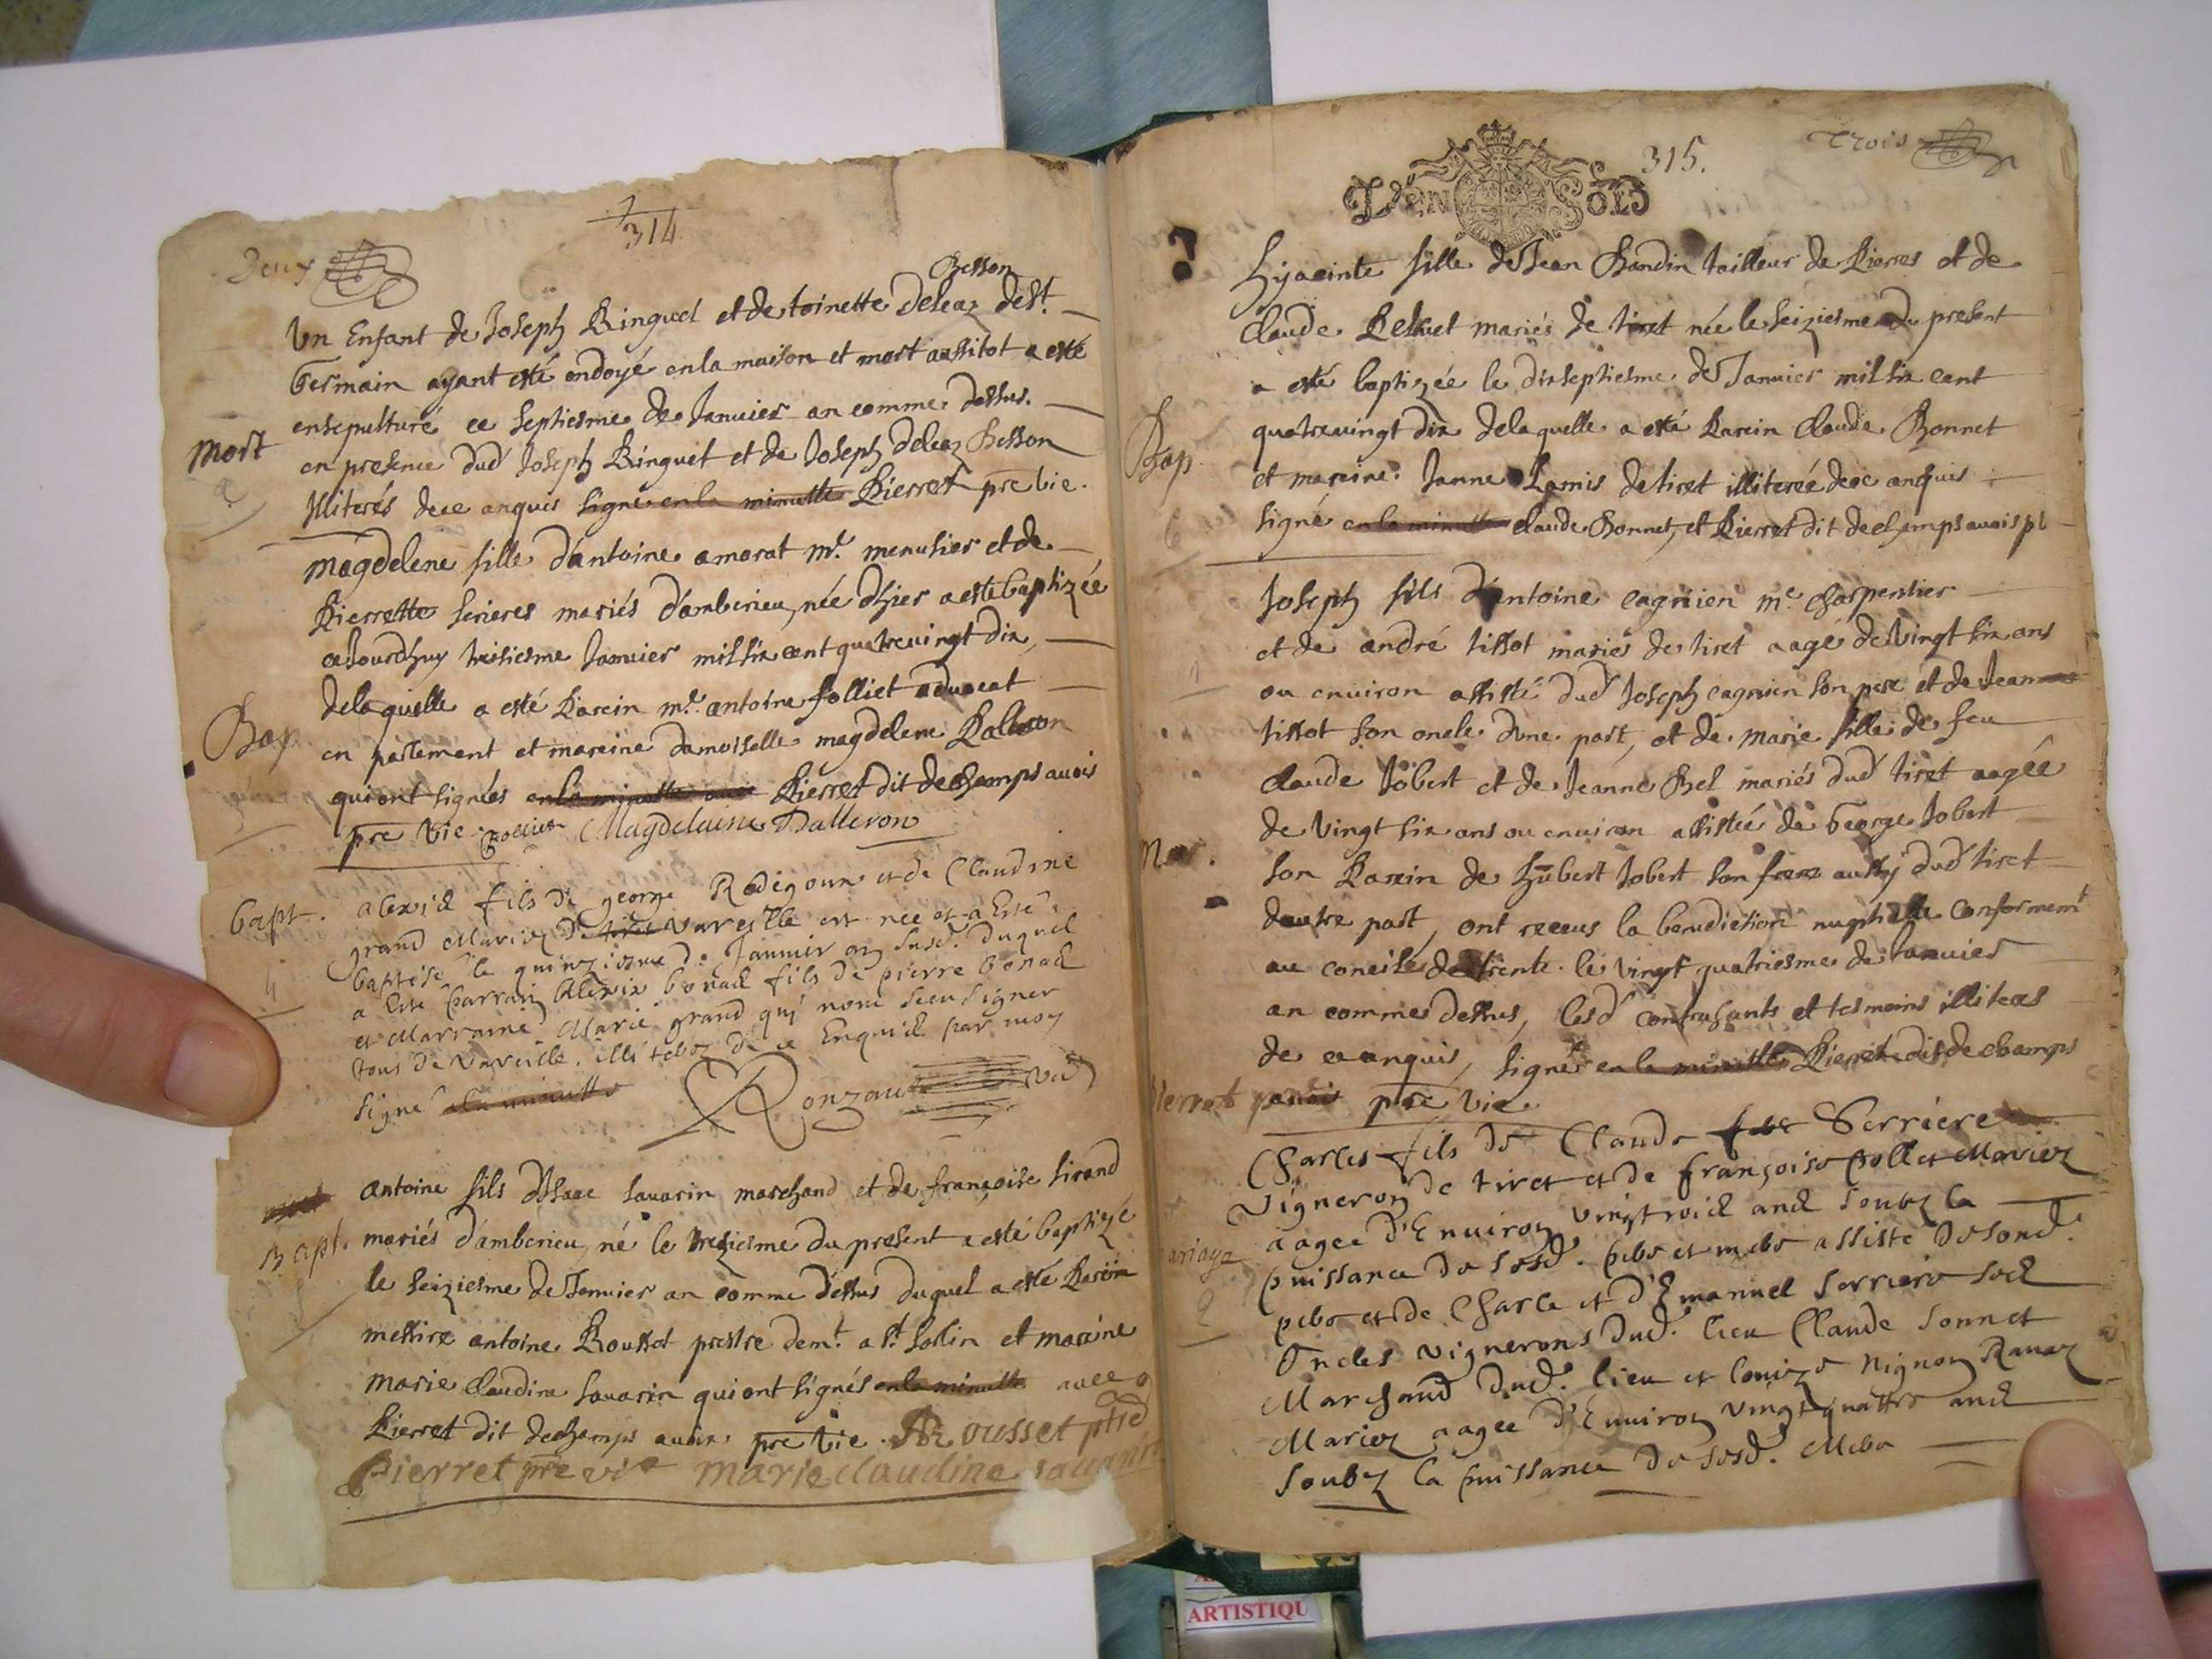 314
Deux
Besson
Un Enfant de Joseph Ringuet et de toinette Deleaz de St.
Germain ayant esté ondoyé en la maison et mort aussitot a esté
ensepulturé ce septiesme de Januier an comme dessus.
Mort
en presence dud Joseph Ringuet et de Joseph deleaz Besson
illiterés de ce enquis signé en la minutte Pierret pre vic.
magdelene fille d'antoine amorat me. menusier et de
Pierrette serieres mariés d'amberieu, née d'hyer a esté baptizée
ce Jourdhuy treisiesme Januier mil six cent quatre vingt dix,
de laquelle a esté Parein mr. antoine folliet aduocat
Bap
en parlement et mareine damoiselle magdelene Palleron
qui ont signées en la minutte Pierret dit dechamps auois
pre vic folliet Magdeleine Palleron
Bapt. alexis fils de george et de Claudine
grand Mariez de tiret Vareille est née et a Esté
baptise le quinziesme de Januier an susd. duquel
4
a Este parrain Alexis bonad fils de pierre bonad
et Marraine Marie grand qui nont sceu signer
tous de Vareille. de ce Enquis par moy
signé a la minutte Ronzaut
Bapt.
antoine fils d'Isaac sauarin marchand et de françoise sirand
mariés d'amberieu, né le treziesme du present a esté baptizé
le seiziesme de Januier an comme dessus duquel a esté Parein
messire antoine Rousset prestre demt. a st. sorlin et mareine
marie claudine sauarin qui ont signés en la minutte auec
Pierret dit dechamps auois pre vic. A Rousset ptre
Pierret pre vic marie claudine sauarin
315.
Trois
Den Sols
?
Hyacinte fille de Jean Bandin tailleur de Pierres et de
claude Peloet mariés de tiret née le seiziesme du present
a esté baptizée le dixseptiesme de Januier mil six cent
Bap.
quatre vingt dix de laquelle a esté Parein claude Bonnet
et mareine Janne Lamis de tiret illiterée de ce enquis
6
signé en la minutte claude Bonnet, et Pierret dit dechamps auois
Joseph fils d'antoine cagnien me. charpentier
et de andré tissot mariés de tiret aagé de vingt six ans
1
ou enuiron assisté dud Joseph cagnien son pere et de Jean
tissot son oncle d'une part, et de marie fille de feu
claude Jobert et de Jeanne Bel mariés dud tiret aagée
de vingt six ans ou enuiron assistée de George Jobert
Mar.
son Parein de hubert Jobert son frere aussy dud tiret
dautre part, ont receus la benediction nuptialle conformemt
au concile de trente le vingt quatriesme de Januier
an comme dessus, lesd contrahants et tesmoins illiterés
de ce enquis, signé en la minutte Pierret dit dechamps
Pierret auois pre vic.
Charles fils de Claude Serriere
Vigneron de tiret et de françoise pollet Mariez
aagee d'Enuiron vingt trois ans soubz la
mariage
puissance de sesd. pere et mere assisté de sond.
2
pere et de Charle et d'Emanuel serriere ses
Oncles vignerons dud. lieu Claude sonnet
Marchand dud. lieu et Nignon Rauaz
Mariez aagee d'Enuiron vingt quattre ans
soubz la puissance de sesd. Mere
ARTISTIQU